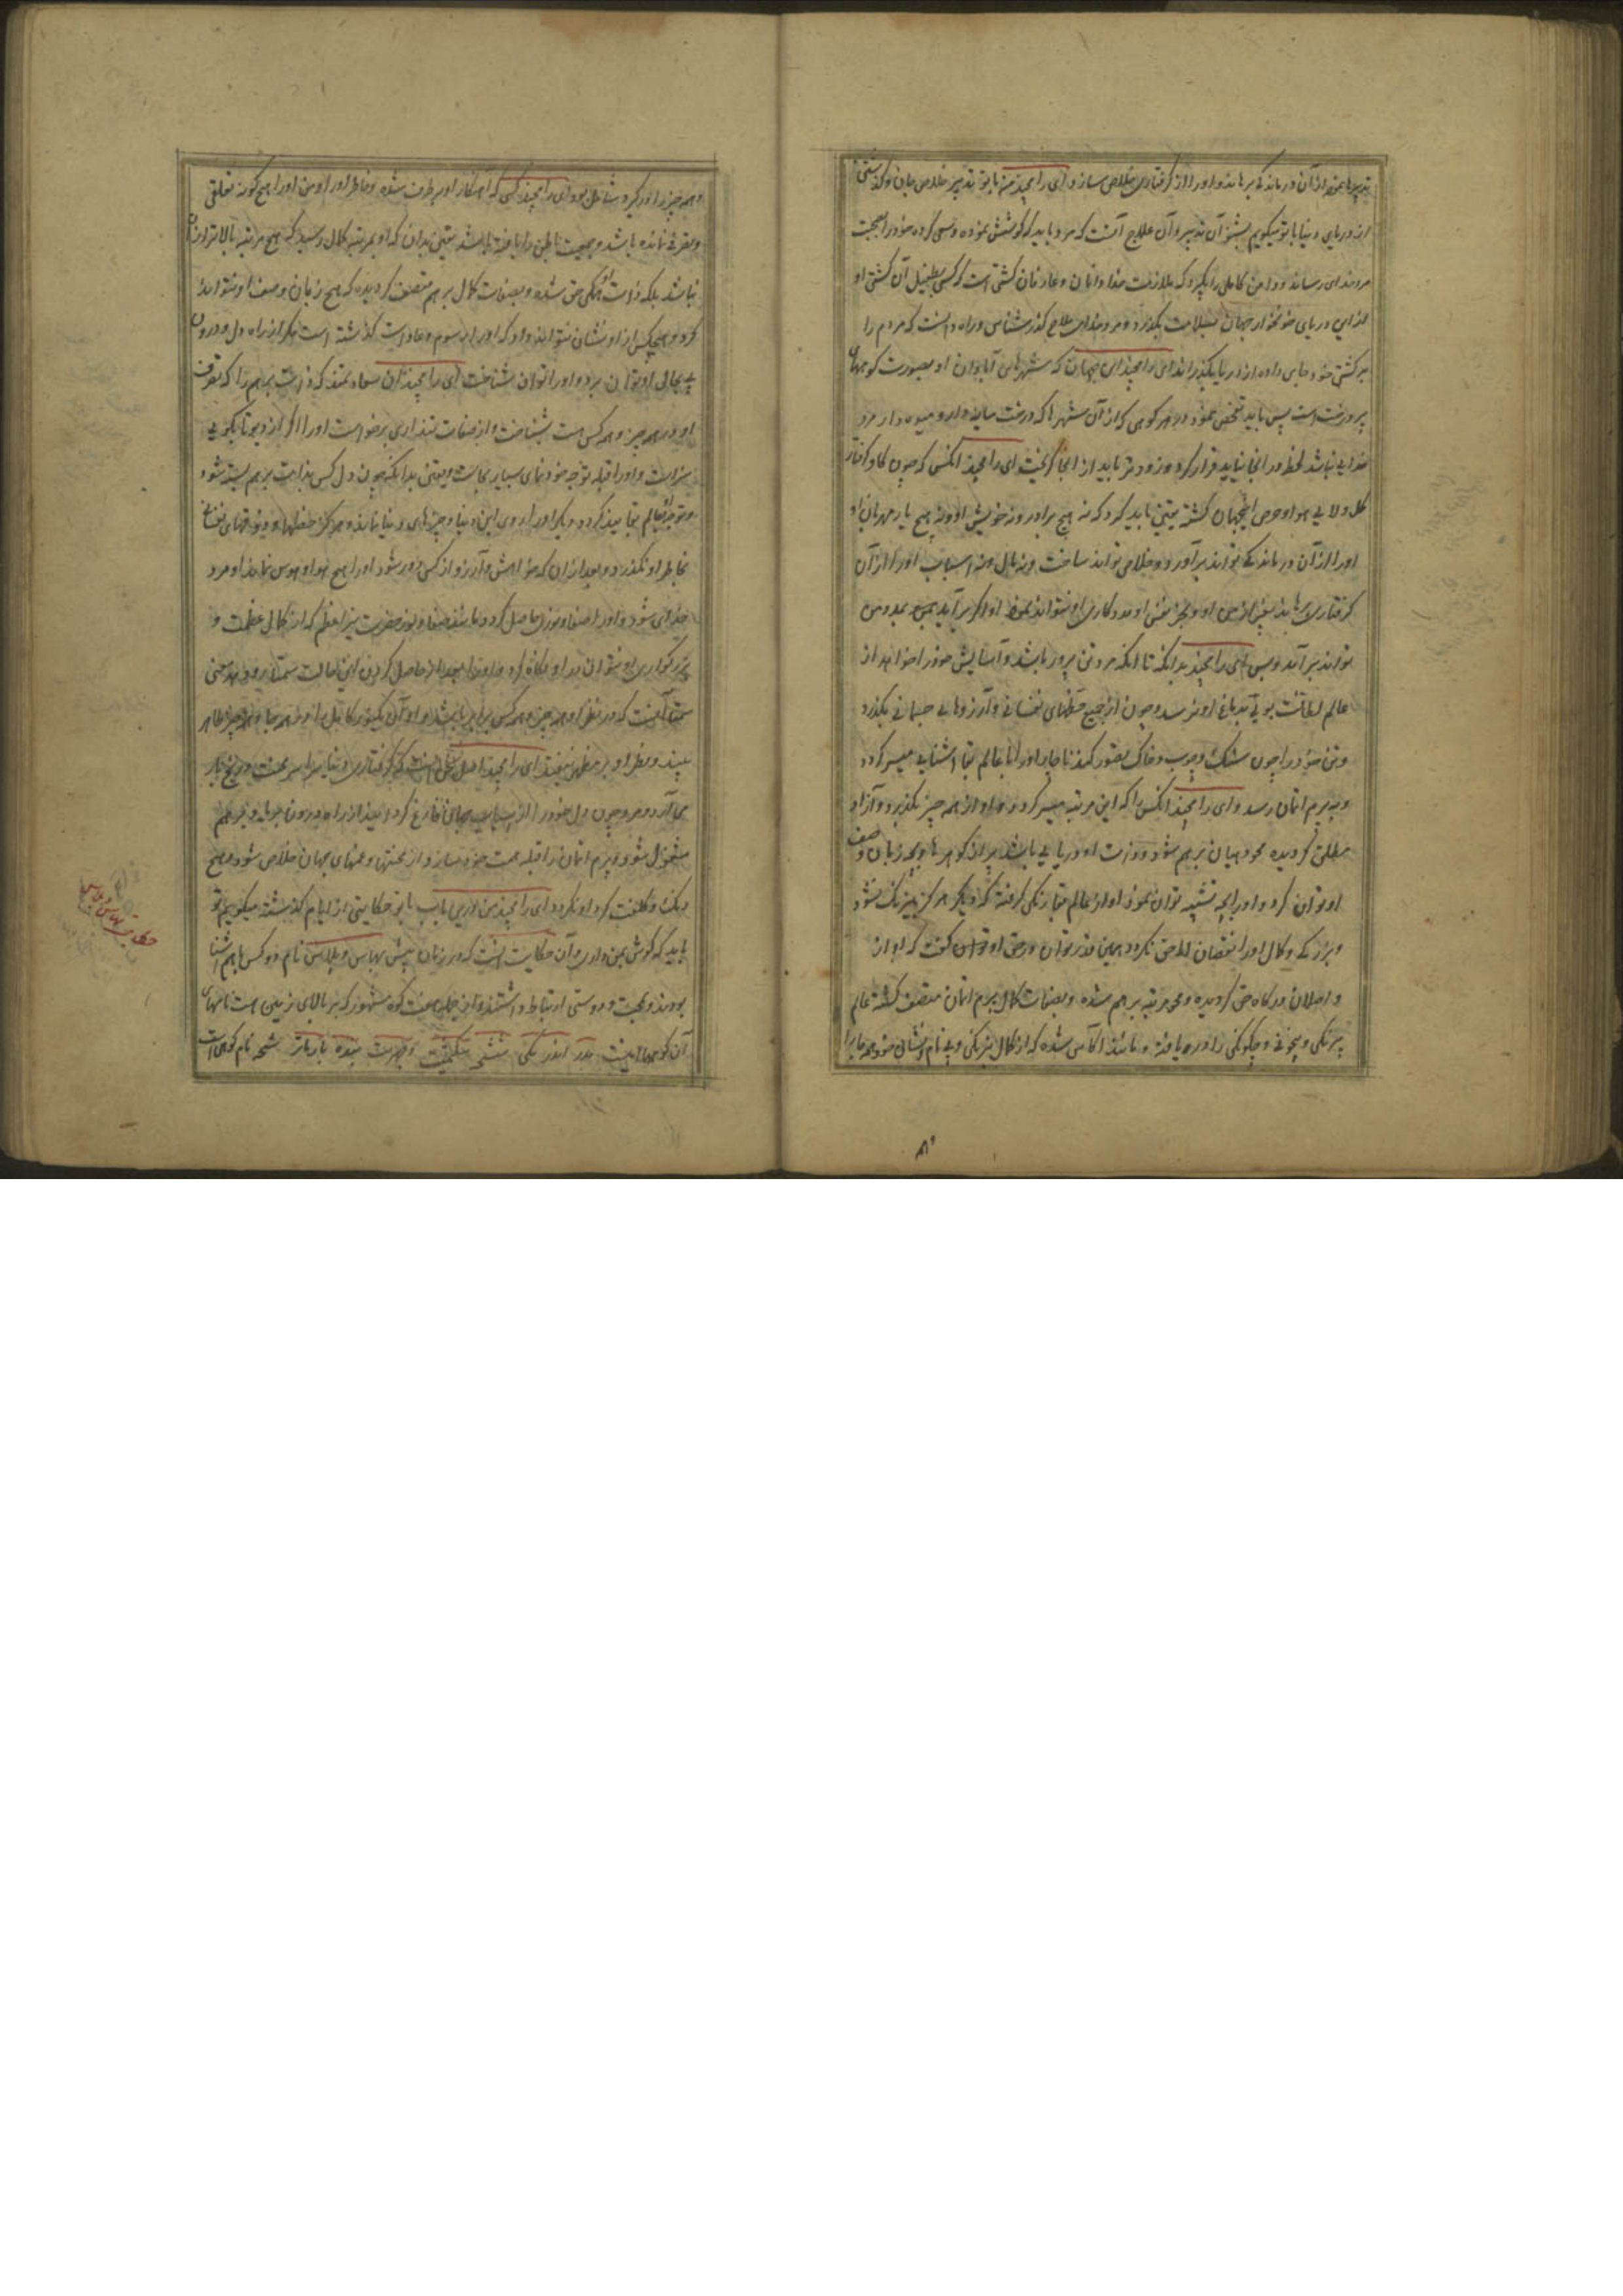 تدبیرها نموده از آن درماندگی برهاند و او را از گرفتاری خلاص سازد ای رامچند من با تو تدبیر خلاص جان و گذشتن
از دریای دنیا با تو میگویم بشنو آن تدبیر و آن علاج آنست که مرد باید که کوشش نموده و سعی کرده خود را بصحبت
مرد خدای رساند و دامن کاملی را بگیرد که ملازمت خدا دانان و عارفان کشتی است که کسی بطفیل آن کشتی او
از این دریای خونخوار جهان بسلامت بگذرد و مرد خدا ملاح گذر شناس و راه دانست که مردم را
بر کشتی خود جای داده از دریا بگذراند ای رامچند این جهان که شهرهای آبادان او بصورت کوهها
پر درخت است پس باید تفحص نمود در هر کوهی که از آن شهرها که درخت سایه دار و میوه دار مرد
خدایی نباشد لحظه در آنجا نباید قرار کرد و زودتر باید از آنجا گریخت ای رامچند آنکس که چون گاو گرفتار
گل و لای هوا و حرص اینجهان گشته یقین باید کرد که نه هیچ برادر و نه خویش او و نه هیچ یار مهربان او
او را از آن درماندگی تواند برآورد و خلاص تواند ساخت و نه مال و نه اسباب او را از آن
گرفتاری رهاند بغیر از من او و بجز نفس او مددکاری او نتواند نمود او اگر برآید بسعی و مدد من
تواند برآمد و بس ای رامچند بدانکه تا آنکه مرد تن پرور باشد و آسایش خود را خواهد از
عالم لطافت بویی بدماغ او نرسد و چون از جمیع حظهای نفسانی و آرزوهای جسمانی بگذرد
و تن خود را چون سنگ و چوب و خاک تصور کند ناچار او را با عالم بقا آشنایی میسر گردد
و به برم اتمان رسد و ای رامچند آنکس را که این مرتبه میسر گردد و او از همه چیز بگذرد و آزاد
مطلق گردیده محو و هیان برهم شود و ذات او دریایی باشد پر از گوهرها و بچه زبان وصف
او توان کرد و او را بچه تشبیه توان نمود او از عالم بقا رنگی گرفته که دیگر هرگز بیرنگ نشود
و بزرگی و کمال او را نقصان لاحق نگردد همین قدر توان در حق او توان گفت که او از
واصلان درگاه حق گردیده و محو مرتبه برهم شده و بصفات کمال برم اتمان متصف گشته عالم
بیرنگی و بیچونی و چگونگی را دریافته و مانند آکاس شده که از کمال بیرنگی و بی نام و نشانی خود همه جا را
و همه چیز را در گیرد و شامل بود ای رامچند کسی که اهنکار او برطرف شده و خاطر او را و من او را هیچ گونه تعلقی
و تفرقی نمانده باشد و جمعیت باطن را یافته باشد یقین بدان که او بمرتبه کمال رسید که هیچ مرتبه بالاتر از آن
نباشد بلکه ذات او همگی حق شده و بصفات کمال برهم متصف گردیده که هیچ زبان وصف او نتواند
کرد و هیچکس از او نشانی نتواند داد که او از رسوم و عادات گذشته است مگر از راه دل و درون
پی بحال او توان برد و او را توان شناخت ای رامچند آن سعادتمند که ذات برهم را که تصرف
او در همه چیز و همه کس هست بشناخت و از صفات تنداری برخاست او را اگر از دیوتا بگویی
سزاست و او را قبله توجه خود نمای بسیار بجاست و یقین بدانکه چون دل کس بذات برهم بسته شود
و متوجه عالم بقا میگردد دیگر او را روی این دنیا و چیزهای دنیا نماند و هرگز حظها و ذوقهای نفسانی
بخاطر او نگذرد و بعد از آن که خواهش و آرزو از کس دور شود او را هیچ هوا و هوس نماند او مرد
خدای شود و او را صفا و نوری حاصل گردد مانند صفا و نور حضرت نیر اعظم که از کمال عظمت و
بزرگواری او نتوان در او نگاه کرد و او را بعد از حاصل کردن این حالت سمتا رو دهد معنی
سمتا آنست که در نظر او همه چیز و همه کس برابر باشد و او آن یکنور کامل را در همه جا و همه چیز ظاهر
بیند و نظر او بر مظهر نیفتد ای رامچند اصل سخن آنست که گرفتاری دنیا سراسر محنت و رنج بار
می آرد و مرد چون دل خود را از اسباب جهان فارغ کرد و بینداز راه درون به یاد برهم
مشغول شود و برم اتمان را قبله همت خود سازد از محنتها و غمهای جهان خلاص شود و هیچ
رنگ و کلفت گرد او نگردد ای رامچند من درین باب با تو حکایتی از ایام گذشته میگویم تو
باید که گوش بمن داری و آن حکایت اینست که در زمان پیش بهاس و بلاس نام دو کس باهم آشنا
بودند و محبت و دوستی ارتباط داشتند و از جمله هفت کوه مشهور که بر بالای زمین است نامهای
آن کوهها اینست
حکایت بهاس و بلاس